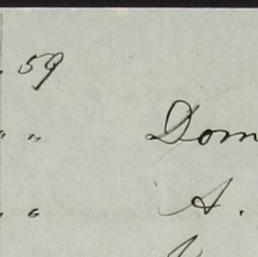 . 59
" " Dom
. " A.